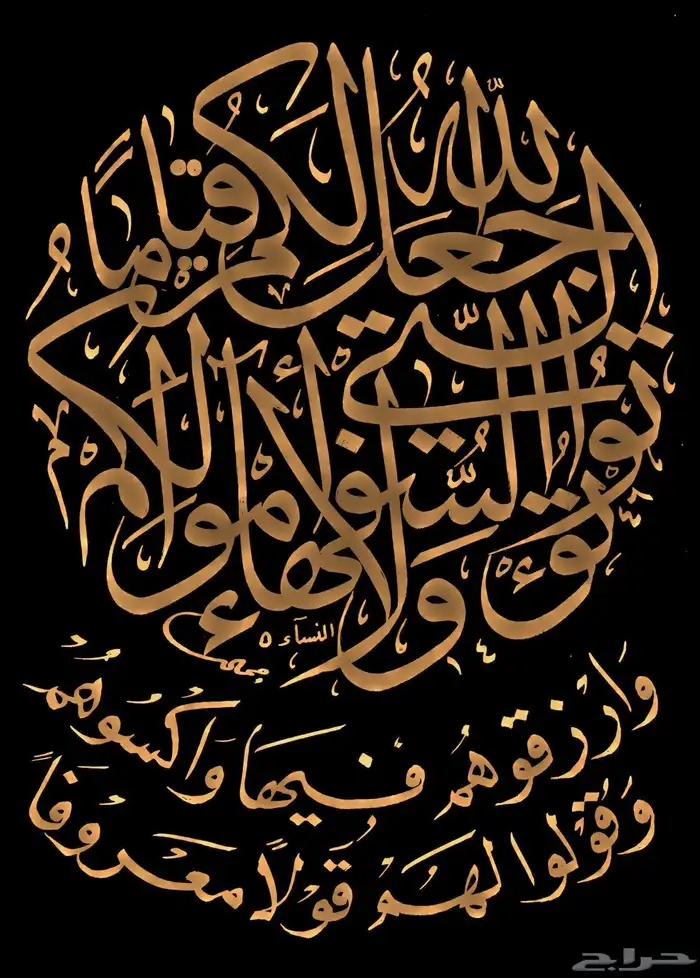 ولا تؤتوا السفهاء أموالكم
التي جعل الله لكم قياما
النسآء ٥
وَارزقوهُم فيها وَاكسُوهُم
وَقُولوا لهَم قَولاً معَرُوفاً
حراج